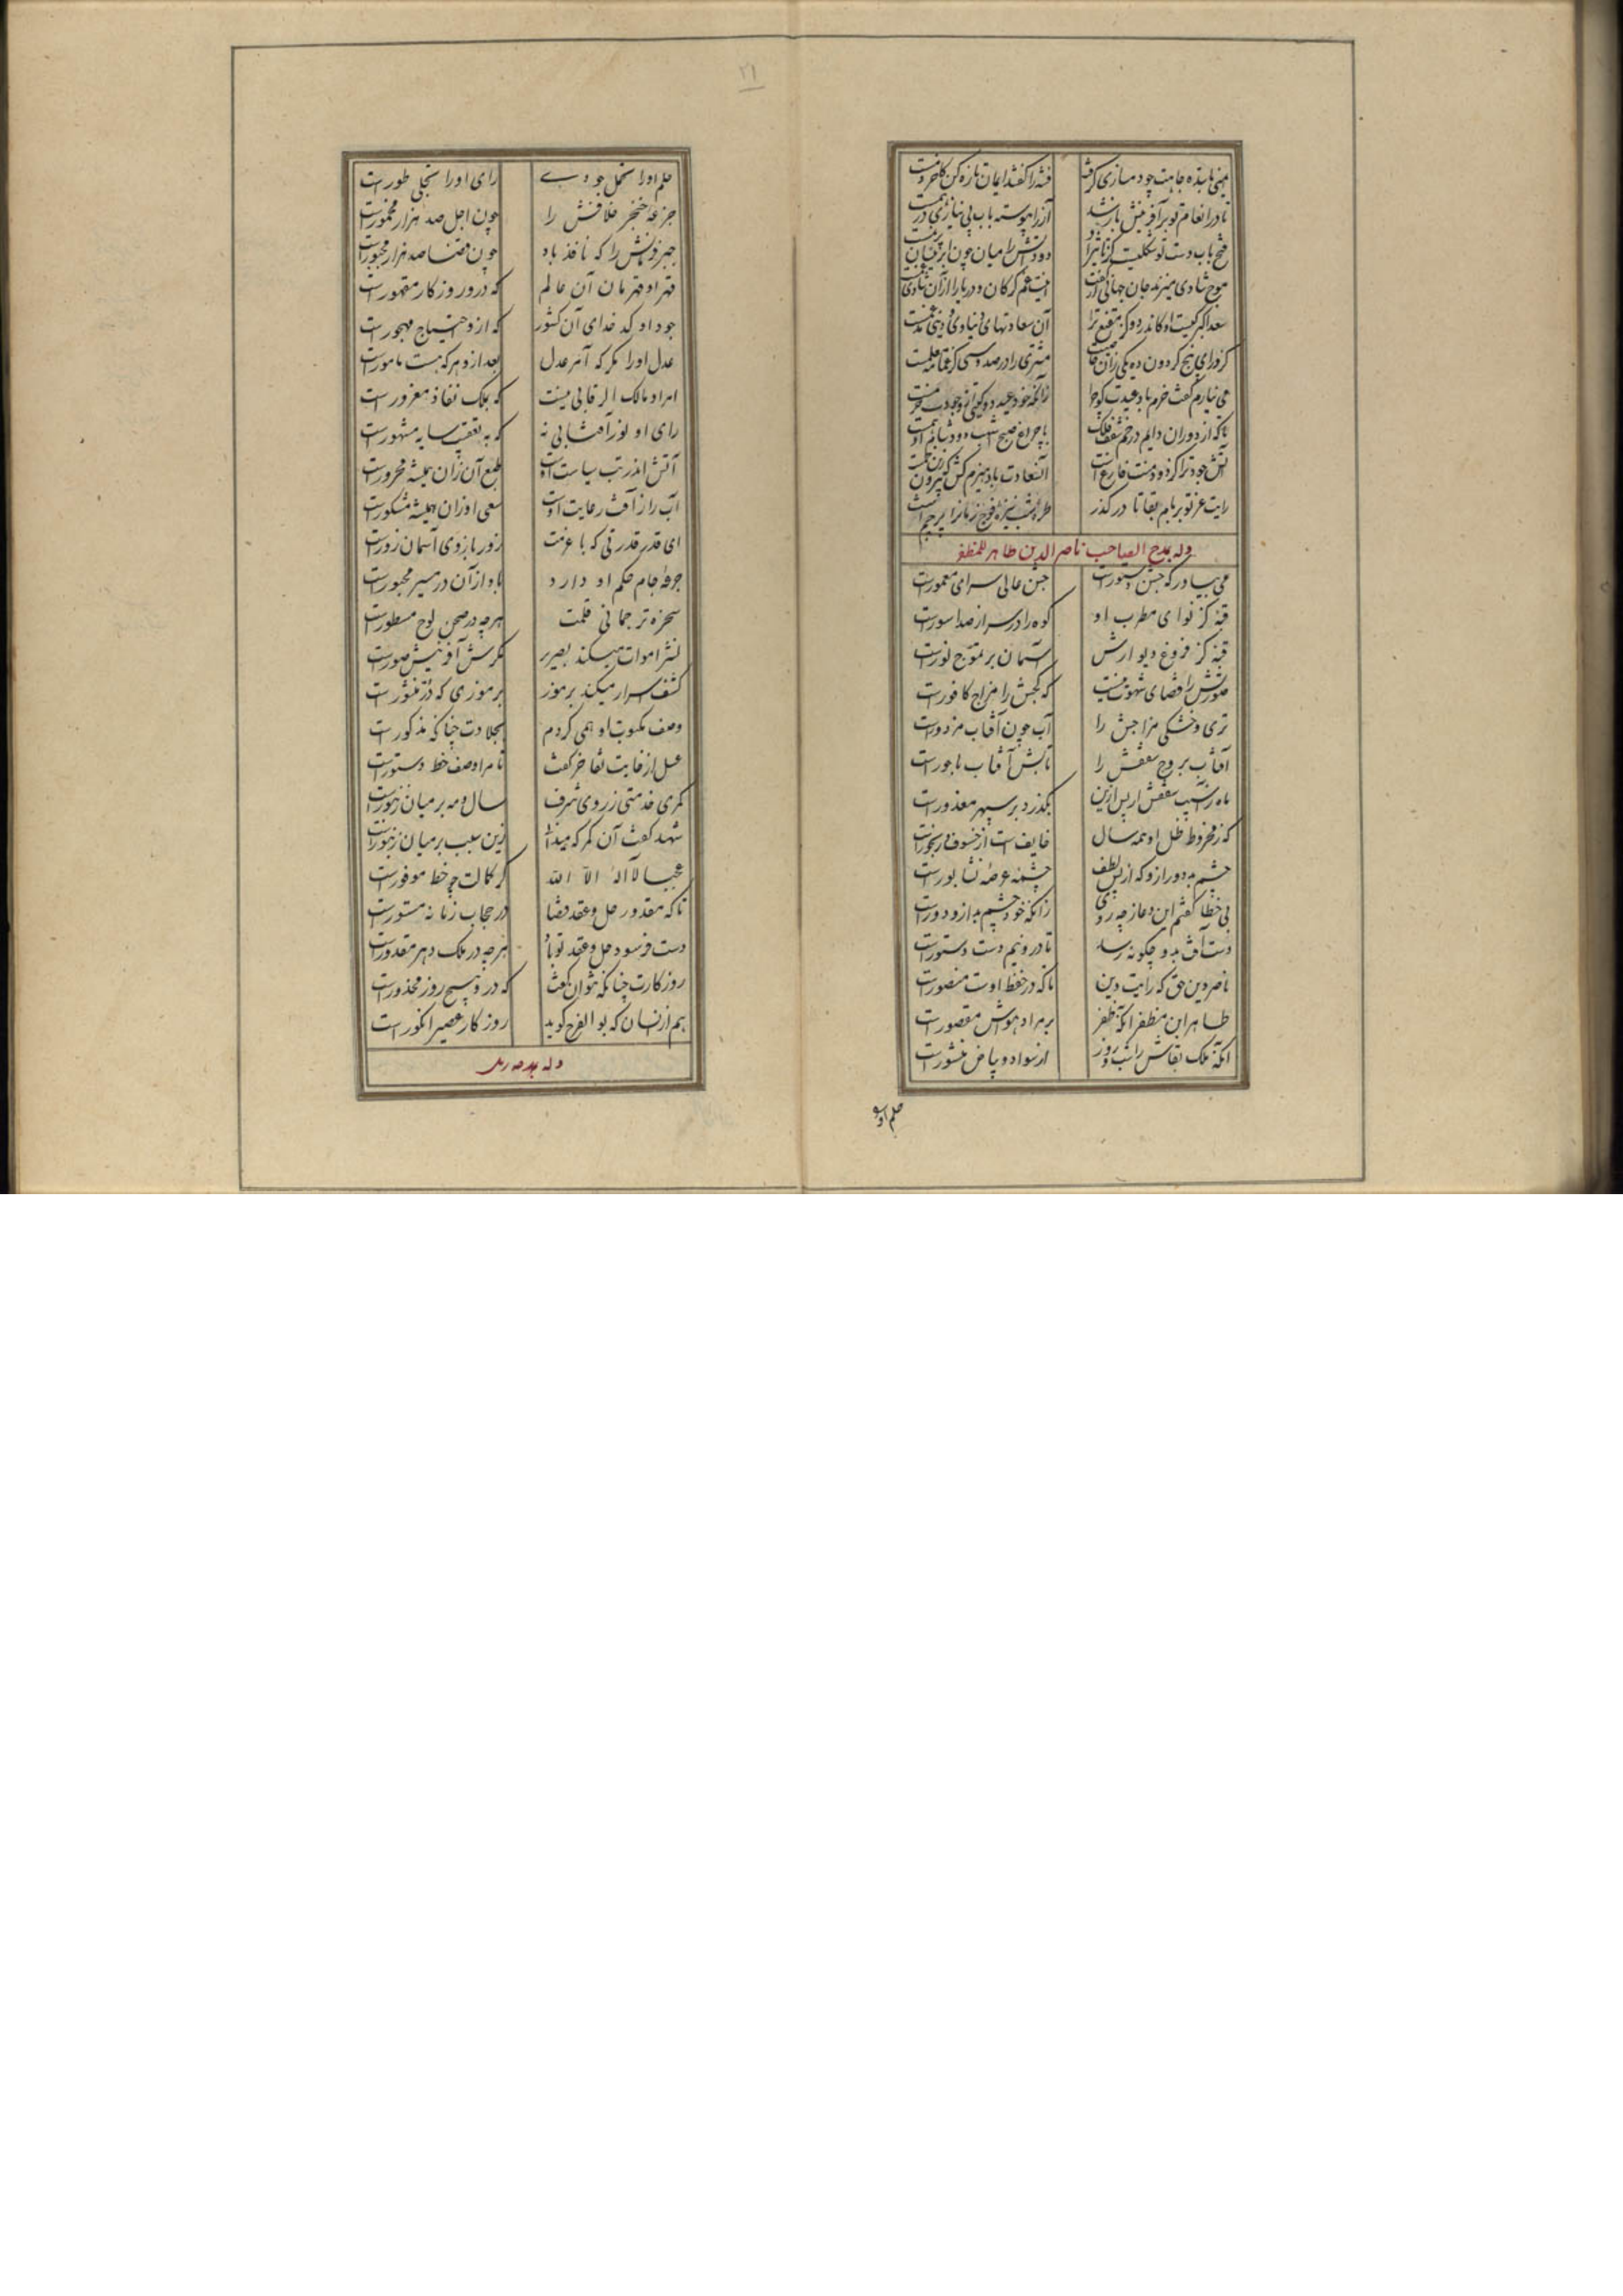 ۲۱
فتنه را گفتند ایمان تازه کن کاخر
تا در انعام تو بر آفرینش باز شد
آز را پیوسته باب بی نیازی در
فتح باب دست تو شکلیست کز تاثیر او
موج شادی میزند جان جهانی
سعد اکبر کیست او کاندر دو
آن سعادتهای دنیاوی و دینی
کز ورای پنج گردون ده یکی زان
مشتری را در صد و سی گز عمامه نیست
می نیارم گفت خرم باد عیدت کو چرا
زانکه خود عید دو گیتی از وجودت خرمست
تا که از دوران دایم در خم سقف فلک
با چراغ صبح
آتش جود ترا کز دود منت فارغ است
رایت عز تو بر بام بقا تا در گذر
وله بمدح الصاحب ناصر الدین طاهر المظفر
می بیاور که جشن دستور است
جشن عالی سرای معمور است
قبه کز نوای مطرب او
کوه را در سر از صدا سور است
قبه کز فروغ دیوارش
آسمان بر تموج نور است
صورتش را قضای شهوت نیست
که گچش را مزاج کافور است
تری و خشکی مزاجش را
آب چون آفتاب مزدور است
آفتاب بروج سقفش را
تابش آفتاب باجور است
ماه را سیب سقفش ار پس ازین
بگذرد بر سپهر معذور است
که ز مخروط ظل او همه سال
خایف است از خسوف و رنجور است
چشم بد دور ازو که از لطف
چشمه عرصه نشابور است
بی خطا گفتم این دعا ز چه روی
زانکه خود چشم بد ازو دور است
دست آفت بدو چگونه رسد
تا درو نیم دست دستور است
ناصر دین حق که رایت دین
تا که در حفظ اوست منصور است
طاهر ابن مظفر آنکه ظفر
بر مراد هواش مقصور است
آنکه ملک بقاش را شب و روز
از سواد و بیاض منشور است
حلم او
حلم او را تحمل جودی
رای او را تجلی طور است
جرعه خنجر خلافش را
چون اجل صد هزار مخمور است
جبر فرمانش را که نافذ باد
چون قضا صد هزار مجبور است
قهر او قهرمان آن عالم
که درو روزگار مقهور است
جود او کدخدای آن کشور
که ازو احتیاج مهجور است
عدل او را مگر که آمر عدل
بعد ازو هر که هست مامور است
امر او مالک الرقابی نیست
که بملک نفاذ مغرور است
رای او نور آفتابی نه
که به تعقیب سایه مشهور است
آتش اندر تب سیاست اوست
طبع آن زان همیشه محرور است
آب را ز آفت رعایت اوست
سعی او زان همیشه مشکور است
ای قدر قدرتی که با عزمت
زور بازوی آسمان زور است
جرعه جام حکم او دارد
باد از آن در مسیر مجبور است
سخره ترجمانی قلمت
هر چه در صحن لوح مسطور است
نشر اموات میکند بصریر
مگرش آفرینش صور است
کشف اسرار میکند برموز
بر رموزی که در منثور است
وصف مکتوب او همی کردم
بحلاوت چنانکه مذکور است
عسل از غایت تفاخر گفت
تا مرا وصف خط دستور است
کمری خدمتی ز روی شرف
سال و مه بر میان زنبور است
شهد گفت آن کمر که میدانی
زین سبب بر میان زنبور است
عجبا لا اله الا الله
کز کمالت چه خط موفور است
تا که مقدور حل و عقد قضا
در حجاب زمانه مستور است
دست فرسود حل و عقد تو باد
هر چه در ملک دهر مقدور است
روزگارت چنانکه نتوان گفت
که درو هیچ روز محذور است
هم از آنسان که بوالفرج گوید
روزگار عصیر انگور است
وله بمدحه